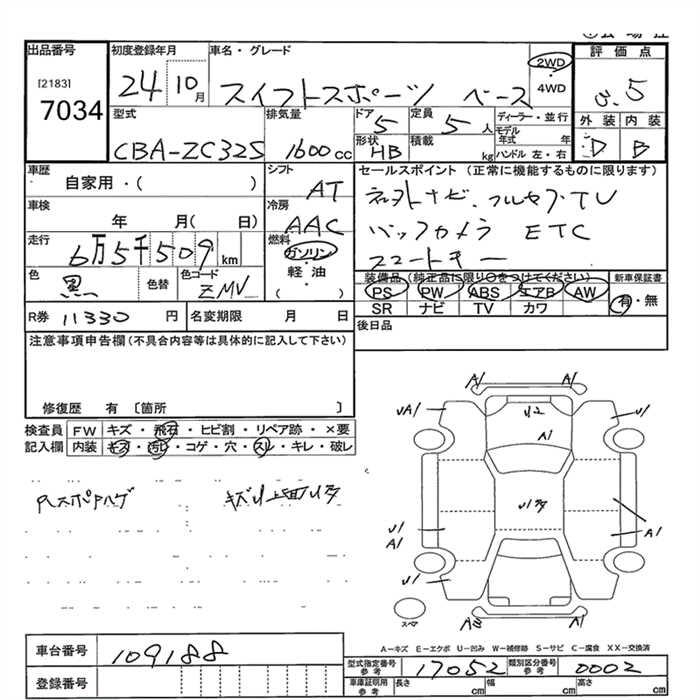 出品番号 初度登録年月 車名・グレード 評価点
[2183]
7034
24 10月 スイフトスポーツ ベース
2WD
・
4WD
3.5
外装 内装
D B
型式 排気量 ドア 定員 ディーラー・並行
CBA-ZC32S 1600cc 5 5人 モデル年式 年
形状 積載
HB kg ハンドル 左・右
車歴 シフト セールスポイント (正常に機能するものに限ります)
自家用・( ) AT
車検 冷房
年 月( 日) AAC
走行 燃料
6万5千509km ガソリン
・
軽油
・
( )
バックカメラ ETC
スマートキー
色 色替 色コード
黒 ZMV
装備品 (純正品に限り○をつけてください) 新車保証書
PS PW ABS エアB AW 有・無
SR ナビ TV カワ
R券 11330円 名変期限 月 日
後日品
注意事項申告欄(不具合内容等は具体的に記入して下さい)
修復歴 有 〔箇所 〕
検査員
記入欄
FW キズ・飛石・ヒビ割・リペア跡・×要
内装 キズ・汚レ・コゲ・穴・スレ・キレ・破レ
A1 A1
UA1 U1
A1
U1
A1
U1
A1
U1
スペア
A-キズ E-エクボ U-凹み W-補修跡 S-サビ C-腐食 XX-交換済
車台番号 109188
登録番号
型式指定番号 参考 17052 類別区分番号 参考 0002
車庫証明用 参考 長さ cm 幅 cm 高さ cm